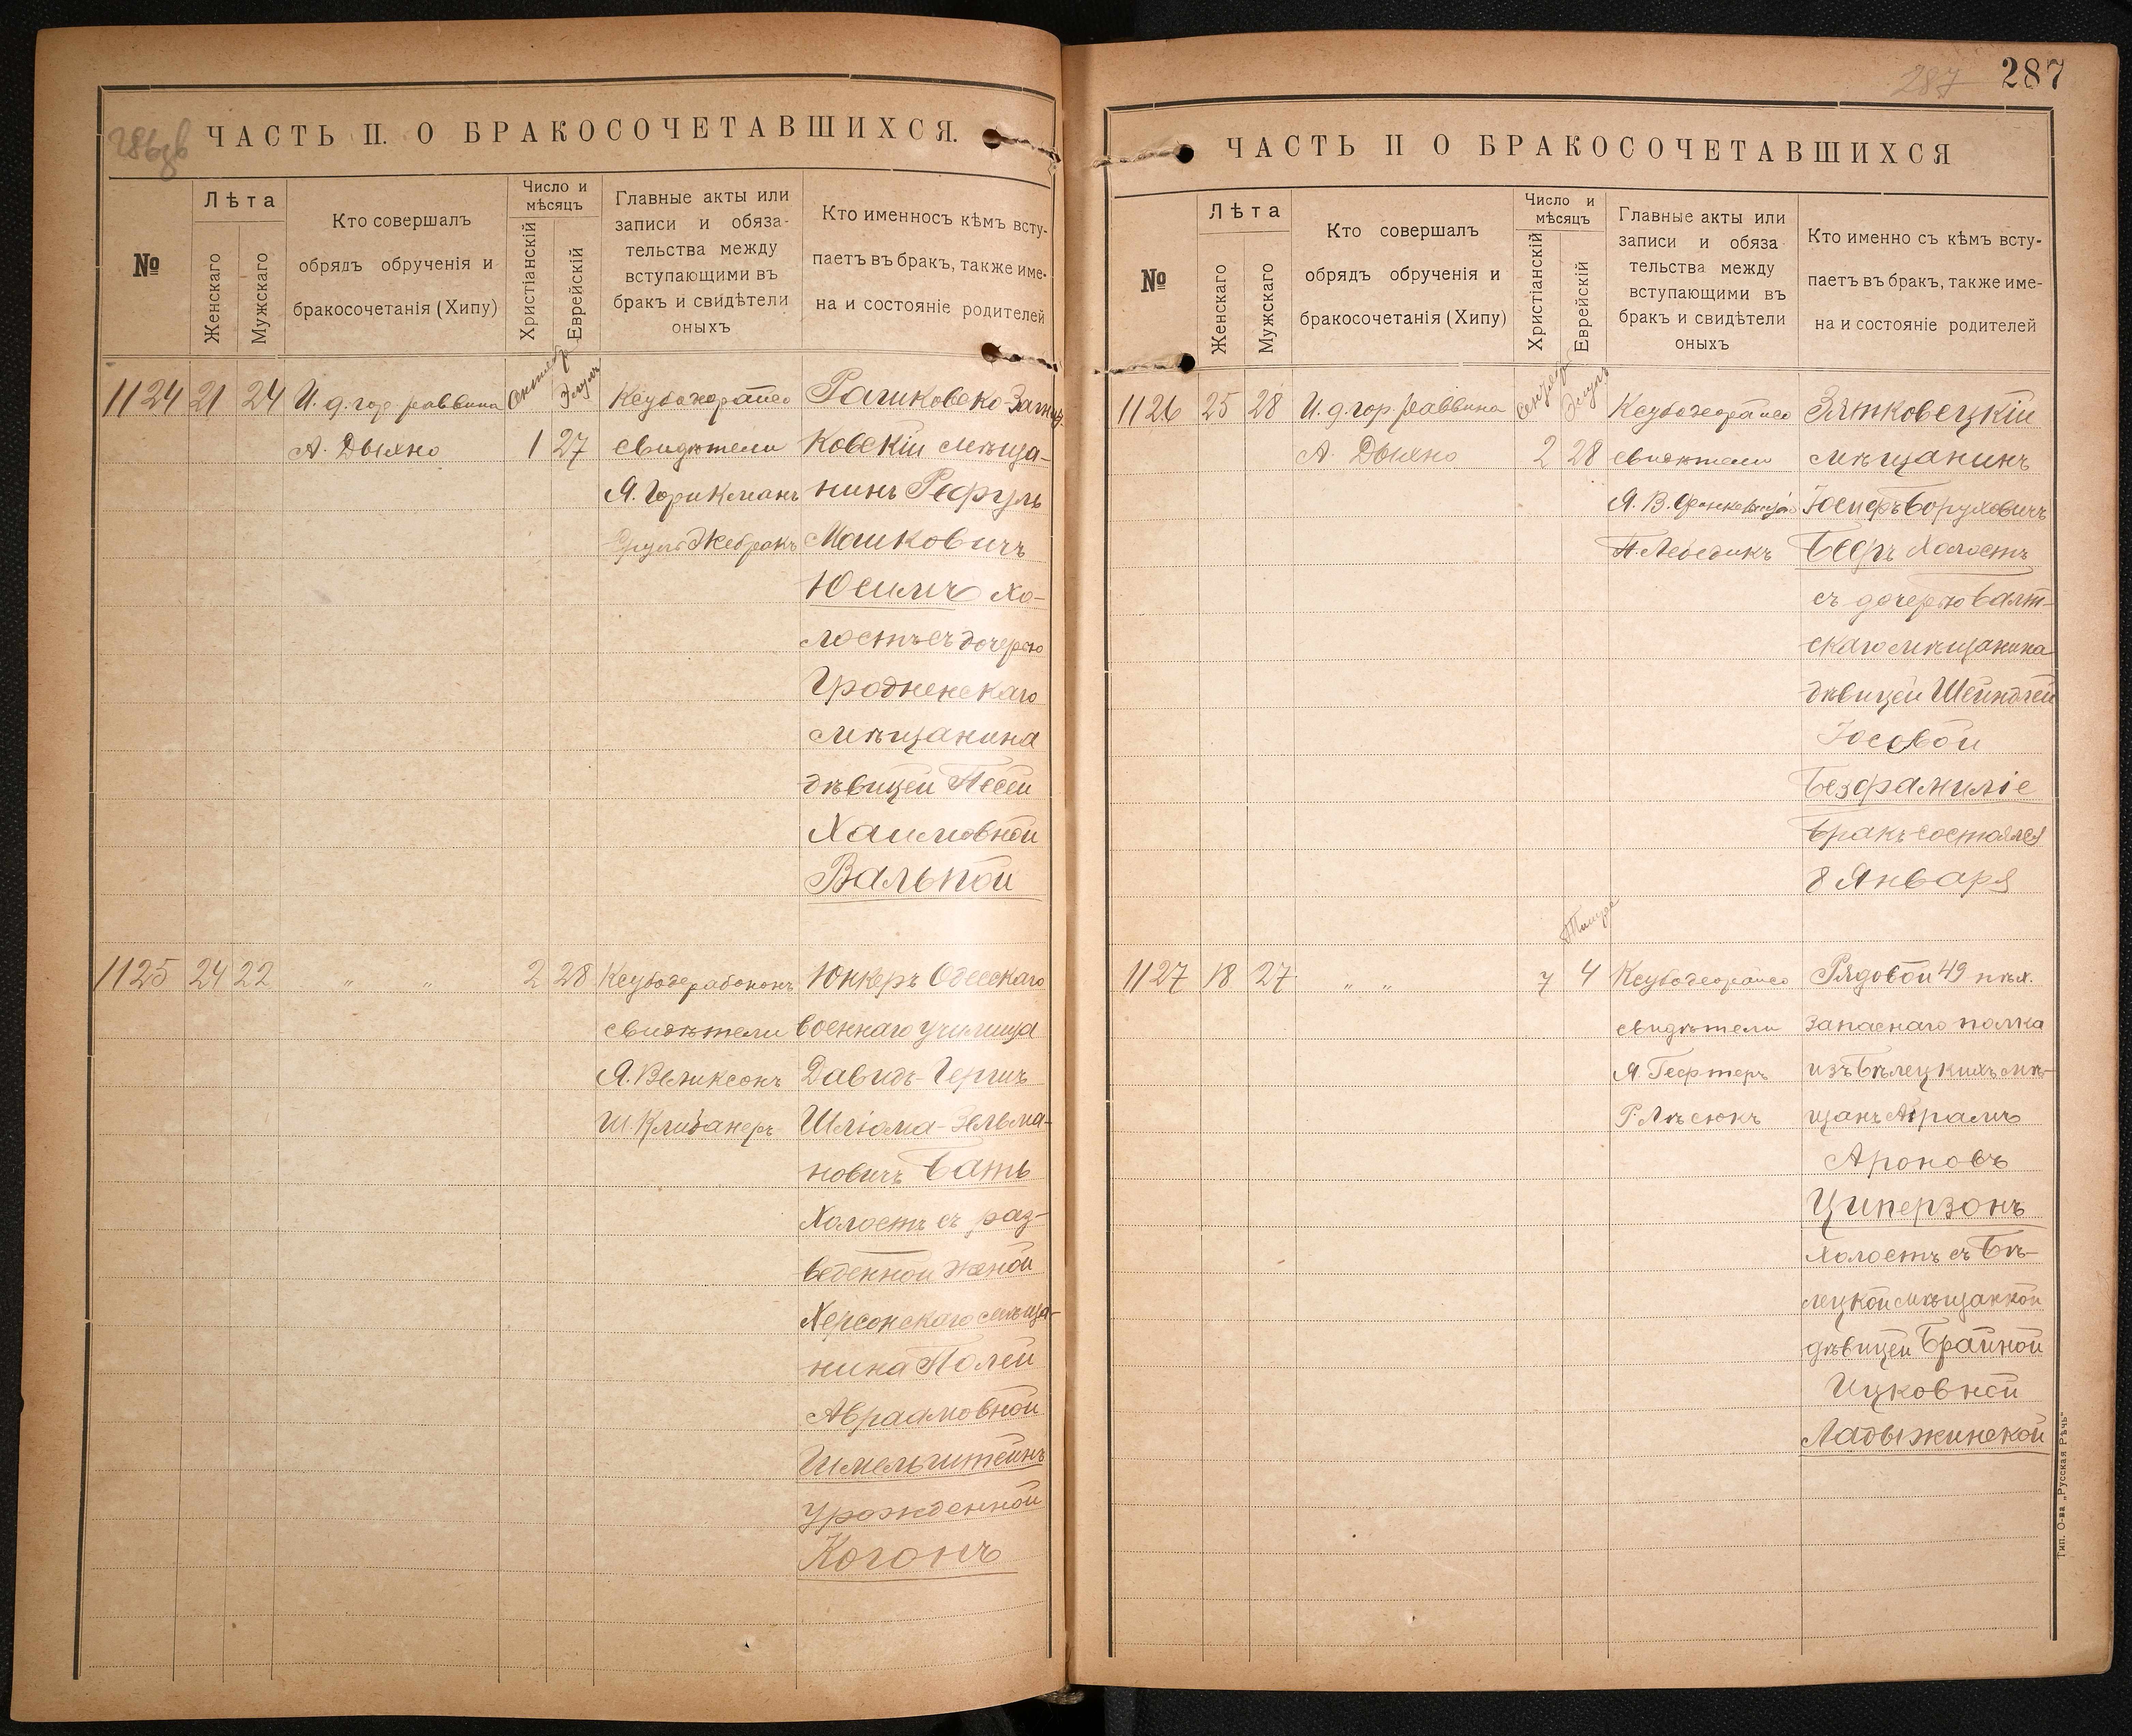 ЧАСТЬ II. О БРАКОСОЧЕТАВШИХСЯ.
№
Лѣта
Женскаго
Мужскаго
Кто совершалъ
обрядъ обрученія и
бракосочетанія (Хипу)
Число и
мѣсяцъ
Христіанскій
Еврейскій
Главные акты или
записи и обяза-
тельства между
вступающими въ
бракъ и свидѣтели
оныхъ
Кто именносъ кѣмъ всту-
паетъ въ бракъ, также име-
на и состояніе родителей
1124 21 24 И. д. гор. раввина
А. Дыхно
1 27
Элулъ
свидѣтели
Рашковско-
ковскій мѣща-
нинъ Рефулъ
Мошковичъ
Юсимъ хо-
лостъ съ дочерью
Гродненскаго
мѣщанина
дѣвицей Песей
Хаимовной
Вальпой
1125 24 22 " " 2 28
свидѣтели
Я. Великсонъ
Ш. Кливанеръ
Юнкеръ Одесскаго
военнаго училища
Давидъ-Гершъ
Шліома-Зельма-
новичъ Бать
Холостъ съ раз-
веденной женой
Херсонскаго мѣща-
нина Полей
Авраамовной
Имельштейнъ
урожденной
Когонъ
287
287
ЧАСТЬ II О БРАКОСОЧЕТАВШИХСЯ
№
Лѣта
Женскаго
Мужскаго
Кто совершалъ
обрядъ обрученія и
бракосочетанія (Хипу)
Число и
мѣсяцъ
Христіанскій
Еврейскій
Главные акты или
записи и обяза
тельства между
вступающими въ
бракъ и свидѣтели
оныхъ
Кто именно съ кѣмъ всту-
паетъ въ бракъ, также име-
на и состояніе родителей
1126 25 28 И. д. гор. раввина
А. Дыхно
2 28
Элулъ
свидѣтели
П. Лебедикъ
Зятковецкій
мѣщанинъ
Іосифъ Боруховичъ
Бееръ Холостъ
съ дочерью Балт-
скаго мѣщанина
дѣвицей Шейндлей
Іосовой
Безфамиліе
Бракъ состоялся
8 Января
1127 18 27 " " 7 4
свидѣтели
Я. Гефтеръ
Р. Лѣсюкъ
Рядовой 49 пѣх.
запаснаго полка
изъ Бѣлецкихъ мѣ-
щанъ Абрамъ
Ароновъ
Циперзонъ
Холостъ съ Бѣ-
лецкой мѣщанкой
дѣвицей Брайной
Ицковной
Ладыжинской
Тип. О-ва „Русская Рѣчь"